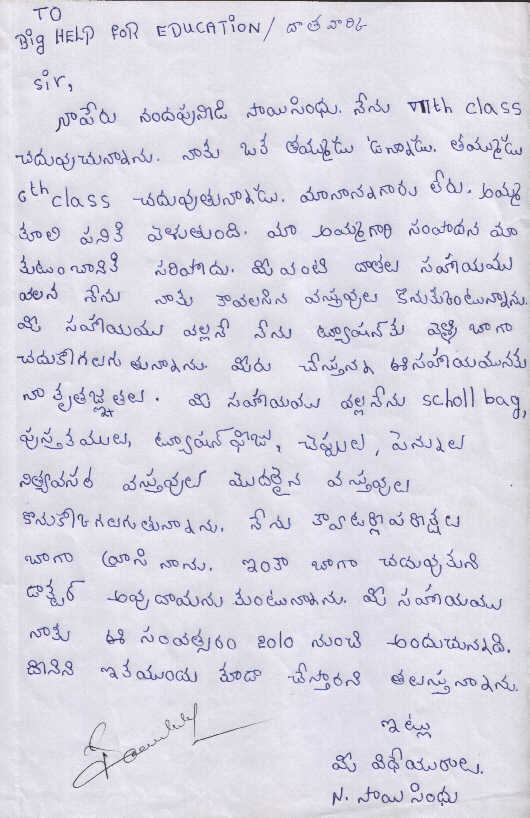 TO
Big HELP FOR EDUCATION / దాతవార్కి
Sir,
నాపేరు నందపునీడి సాయిసింధు. నేను VIIth class
చదువుచున్నాను. నాకు ఒక తమ్ముడు ఉన్నాడు. తమ్ముడు
6th class చదువుతున్నాడు. మానాన్నగారు లేరు. అమ్మ
కూలి పనికి వెళుతుంది. మా అమ్మగారి సంపాదన మా
కుటుంబానికి సరిపోదు. మీ వంటి దాతల సహాయము
వలన నేను నాకు కావలసిన వస్తువులు కొనుకుంటున్నాను.
మీ సహాయము వల్లనే నేను ట్యూషన్‌కు వెళ్లి బాగా
చదుకోగలుగుతున్నాను. మీరు చేస్తున్న ఈసహాయమునకు
నా కృతజ్ఞతలు. మీ సహాయము వల్లనేను scholl bag,
పుస్తకములు, ట్యూషన్ ఫీజు, చెప్పుల, పెన్నులు
నిత్యవసర వస్తువులు మొదలైన వస్తువులు
కొనుకోగలుగుతున్నాను. నేను క్వాటర్లీపరీక్షలు
బాగా వ్రాసినాను. ఇంకా బాగా చదువుకుని
డాక్టర్ అవుదామను కుంటున్నాను. మీ సహాయము
నాకు ఈ సంవత్సరం 2010 నుంచి అందుచున్నది.
దీనిని ఇకముందు కూడా చేస్తారని తలస్తున్నాను.
ఇట్లు
మీ విధేయురాలు.
N. సాయి సింధు